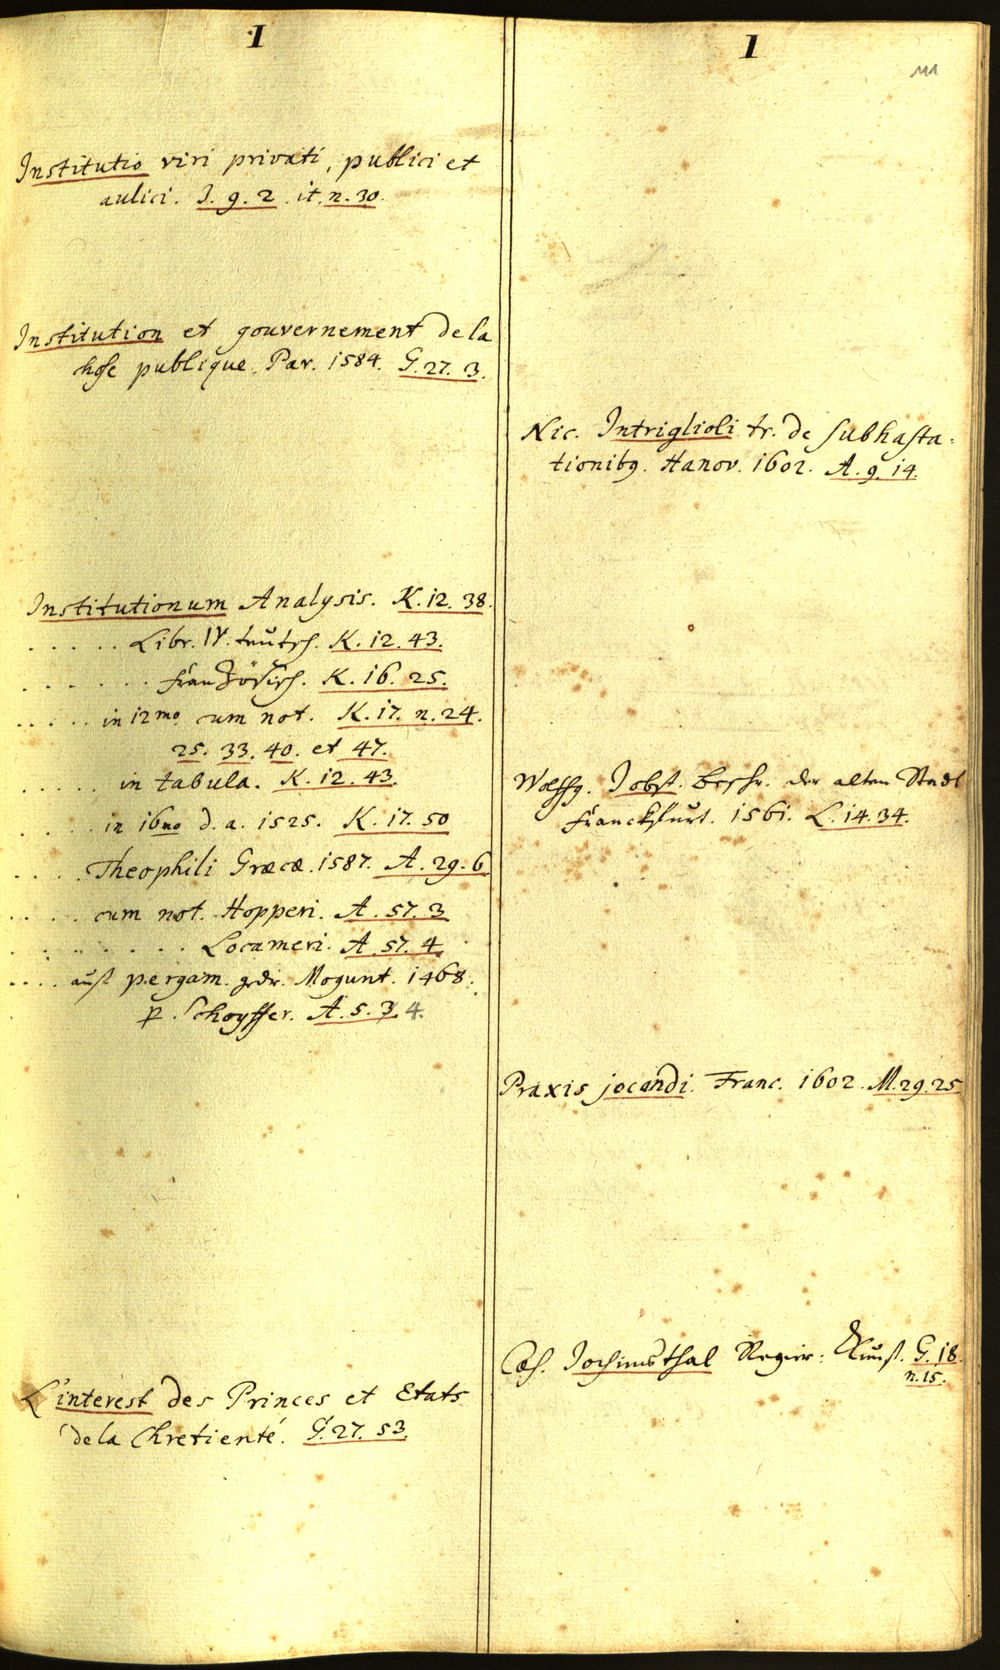 I
Institutio viri privati, publici et
aulici. I. 9. 2. it. n. 30.
Institution et gouvernement de la
chose publique. Par. 1584. G. 27. 3.
Institutionum Analysis. K. 12. 38.
. . . . . Libr. IV. teutsch. K. 12. 43.
. . . . . . . Französisch. K. 16. 25.
. . . . . in 12mo cum not. K. 17. n. 24.
25. 33. 40. et 47.
. . . . . in tabula. K. 12. 43.
. . . . in 16mo d. a. 1525. K. 17. 50
. . . . Theophili Græcæ. 1587. A. 29. 6
. . . . cum not. Hopperi. A. 57. 3
. . . . . . . Locameri. A. 57. 4.
. . . . auf pergam. gedr. Mogunt. 1468.
p. Schoyffer. A. 5. 3. 4.
L'interest des Princes et Etats
de la Chretienté. G. 27. 53.
I
111
Nic. Intriglioli tr. de subhasta-
tionibq. Hanov. 1602. A. 9. 14.
Wolffg. Jobst. Beschr. der alten Stadt
Franckfurt. 1561. L. 14. 34.
Praxis jocandi. Franc. 1602. M. 29. 25
Jochimsthal Regier: Kunst. G. 18.
n. 15.